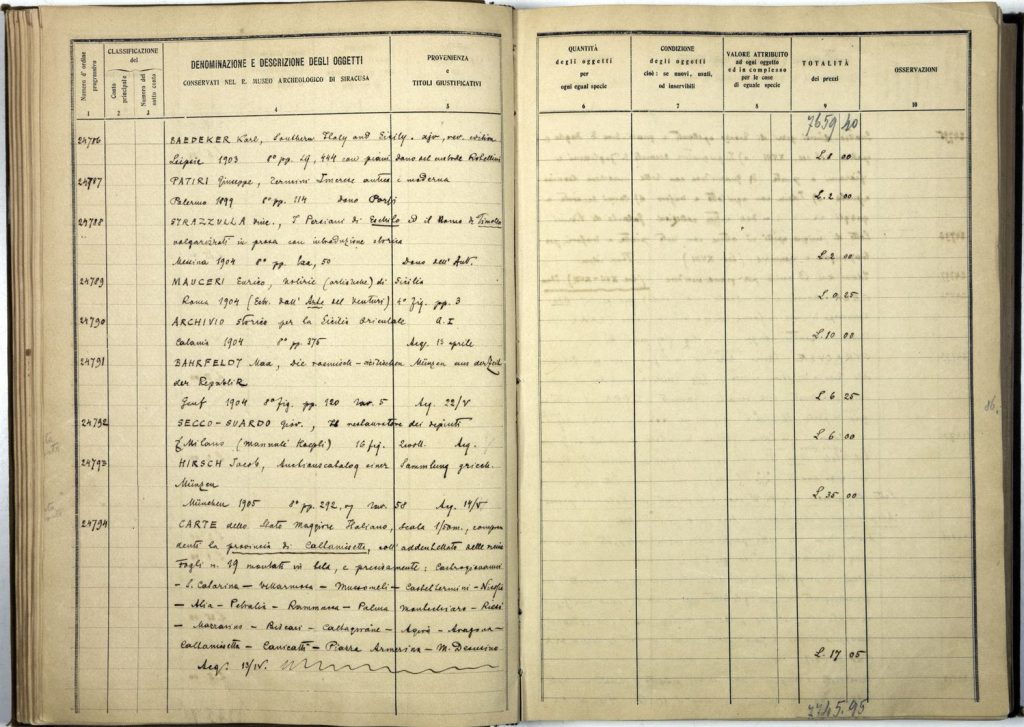 Numero d'ordine progressivo
CLASSIFICAZIONE del
Conto principale
Numero del sotto conto
DENOMINAZIONE E DESCRIZIONE DEGLI OGGETTI
CONSERVATI NEL R. MUSEO ARCHEOLOGICO DI SIRACUSA
PROVENIENZA
e
TITOLI GIUSTIFICATIVI
QUANTITÀ
degli oggetti
per
ogni egual specie
CONDIZIONE
degli oggetti
cioè: se nuovi, usati,
od inservibili
VALORE ATTRIBUITO
ad ogni oggetto
ed in complesso
per le cose
di eguale specie
TOTALITÀ
dei prezzi
OSSERVAZIONI
1 2 3 4 5 6 7 8 9 10
7659 40
24786 BAEDEKER Karl, Southern Italy and Sicily. rev. edition
Leipzic 1903 8° pp. 444 con piani dono del
L. 8 00
24787 PATIRI Giuseppe, Termini Imerese antica e moderna
Palermo 1899 8° pp. 114 dono
L. 2 00
24788 STRAZZULLA Vinc., I Persiani di Eschilo ed il Nomo di Timoteo
volgarizzati in prosa con introduzione storica
Messina 1904 8° pp. 50 Dono dell'Aut.
L. 2 00
24789 MAUCERI Enrico, notizie (artistiche) di Sicilia
Roma 1904 (Estr. dall'Arte del Venturi) 4° fig. pp. 3
L. 0 25
24790 ARCHIVIO storico per la Sicilia orientale a. I
Catania 1904 8° pp. 375 Acq. 13 aprile
L. 10 00
24791 BAHRFELDT Max, Die roemisch-sicilischen Münzen aus der Zeit
der Republik
Genf 1904 8° fig. pp. 120 tav. 5 Acq. 22/V
L. 6 25
24792 SECCO-SUARDO Giov., Il restauratore dei dipinti
Milano (manuali Hoepli) 16 fig. 2 voll. Acq.
L. 6 00
24793 HIRSCH Jacob, Auctionscatalog einer Sammlung griech.
Münzen
München 1905 8° pp. 292, tav. 58 Acq. 14/V
L. 35 00
24794 CARTE dello Stato Maggiore Italiano, scala 1/50m., compren
denti la provincia di Caltanissetta, coll'addentellato delle
Fogli n. 19 montati in tela, e precisamente: Castrogiovanni
– S. Catarina – Villarmosa – Mussomeli – Casteltermini –
– Alia – Petralia – Rammacca – Palma Montechiaro – Riesi
– Mazzarino – Biscari – Caltagirone – Agira – Aragona –
Caltanissetta – Canicattì – Piazza Armerina – M.
Acq. 13/IV.
L. 17 05
7745.95
86.